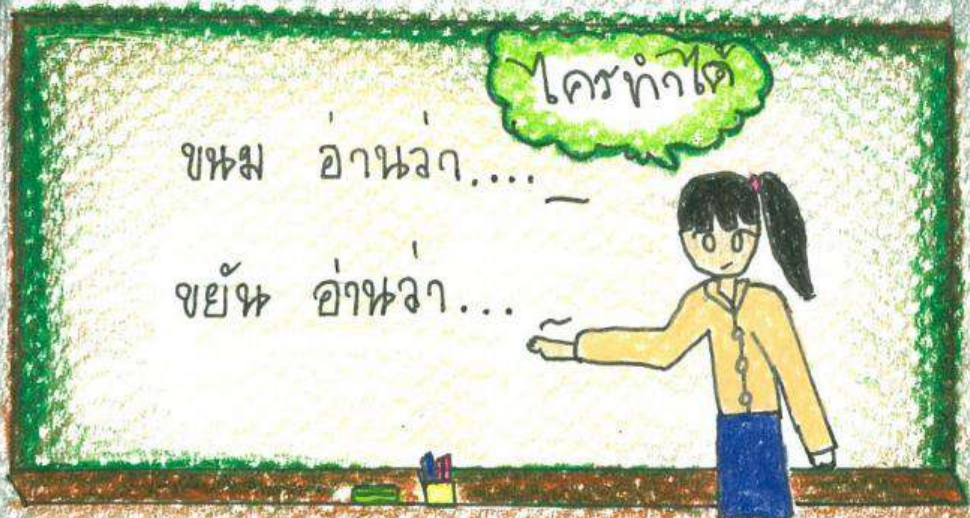 ใครทำได้
ขนม อ่านว่า....
ขยัน อ่านว่า...